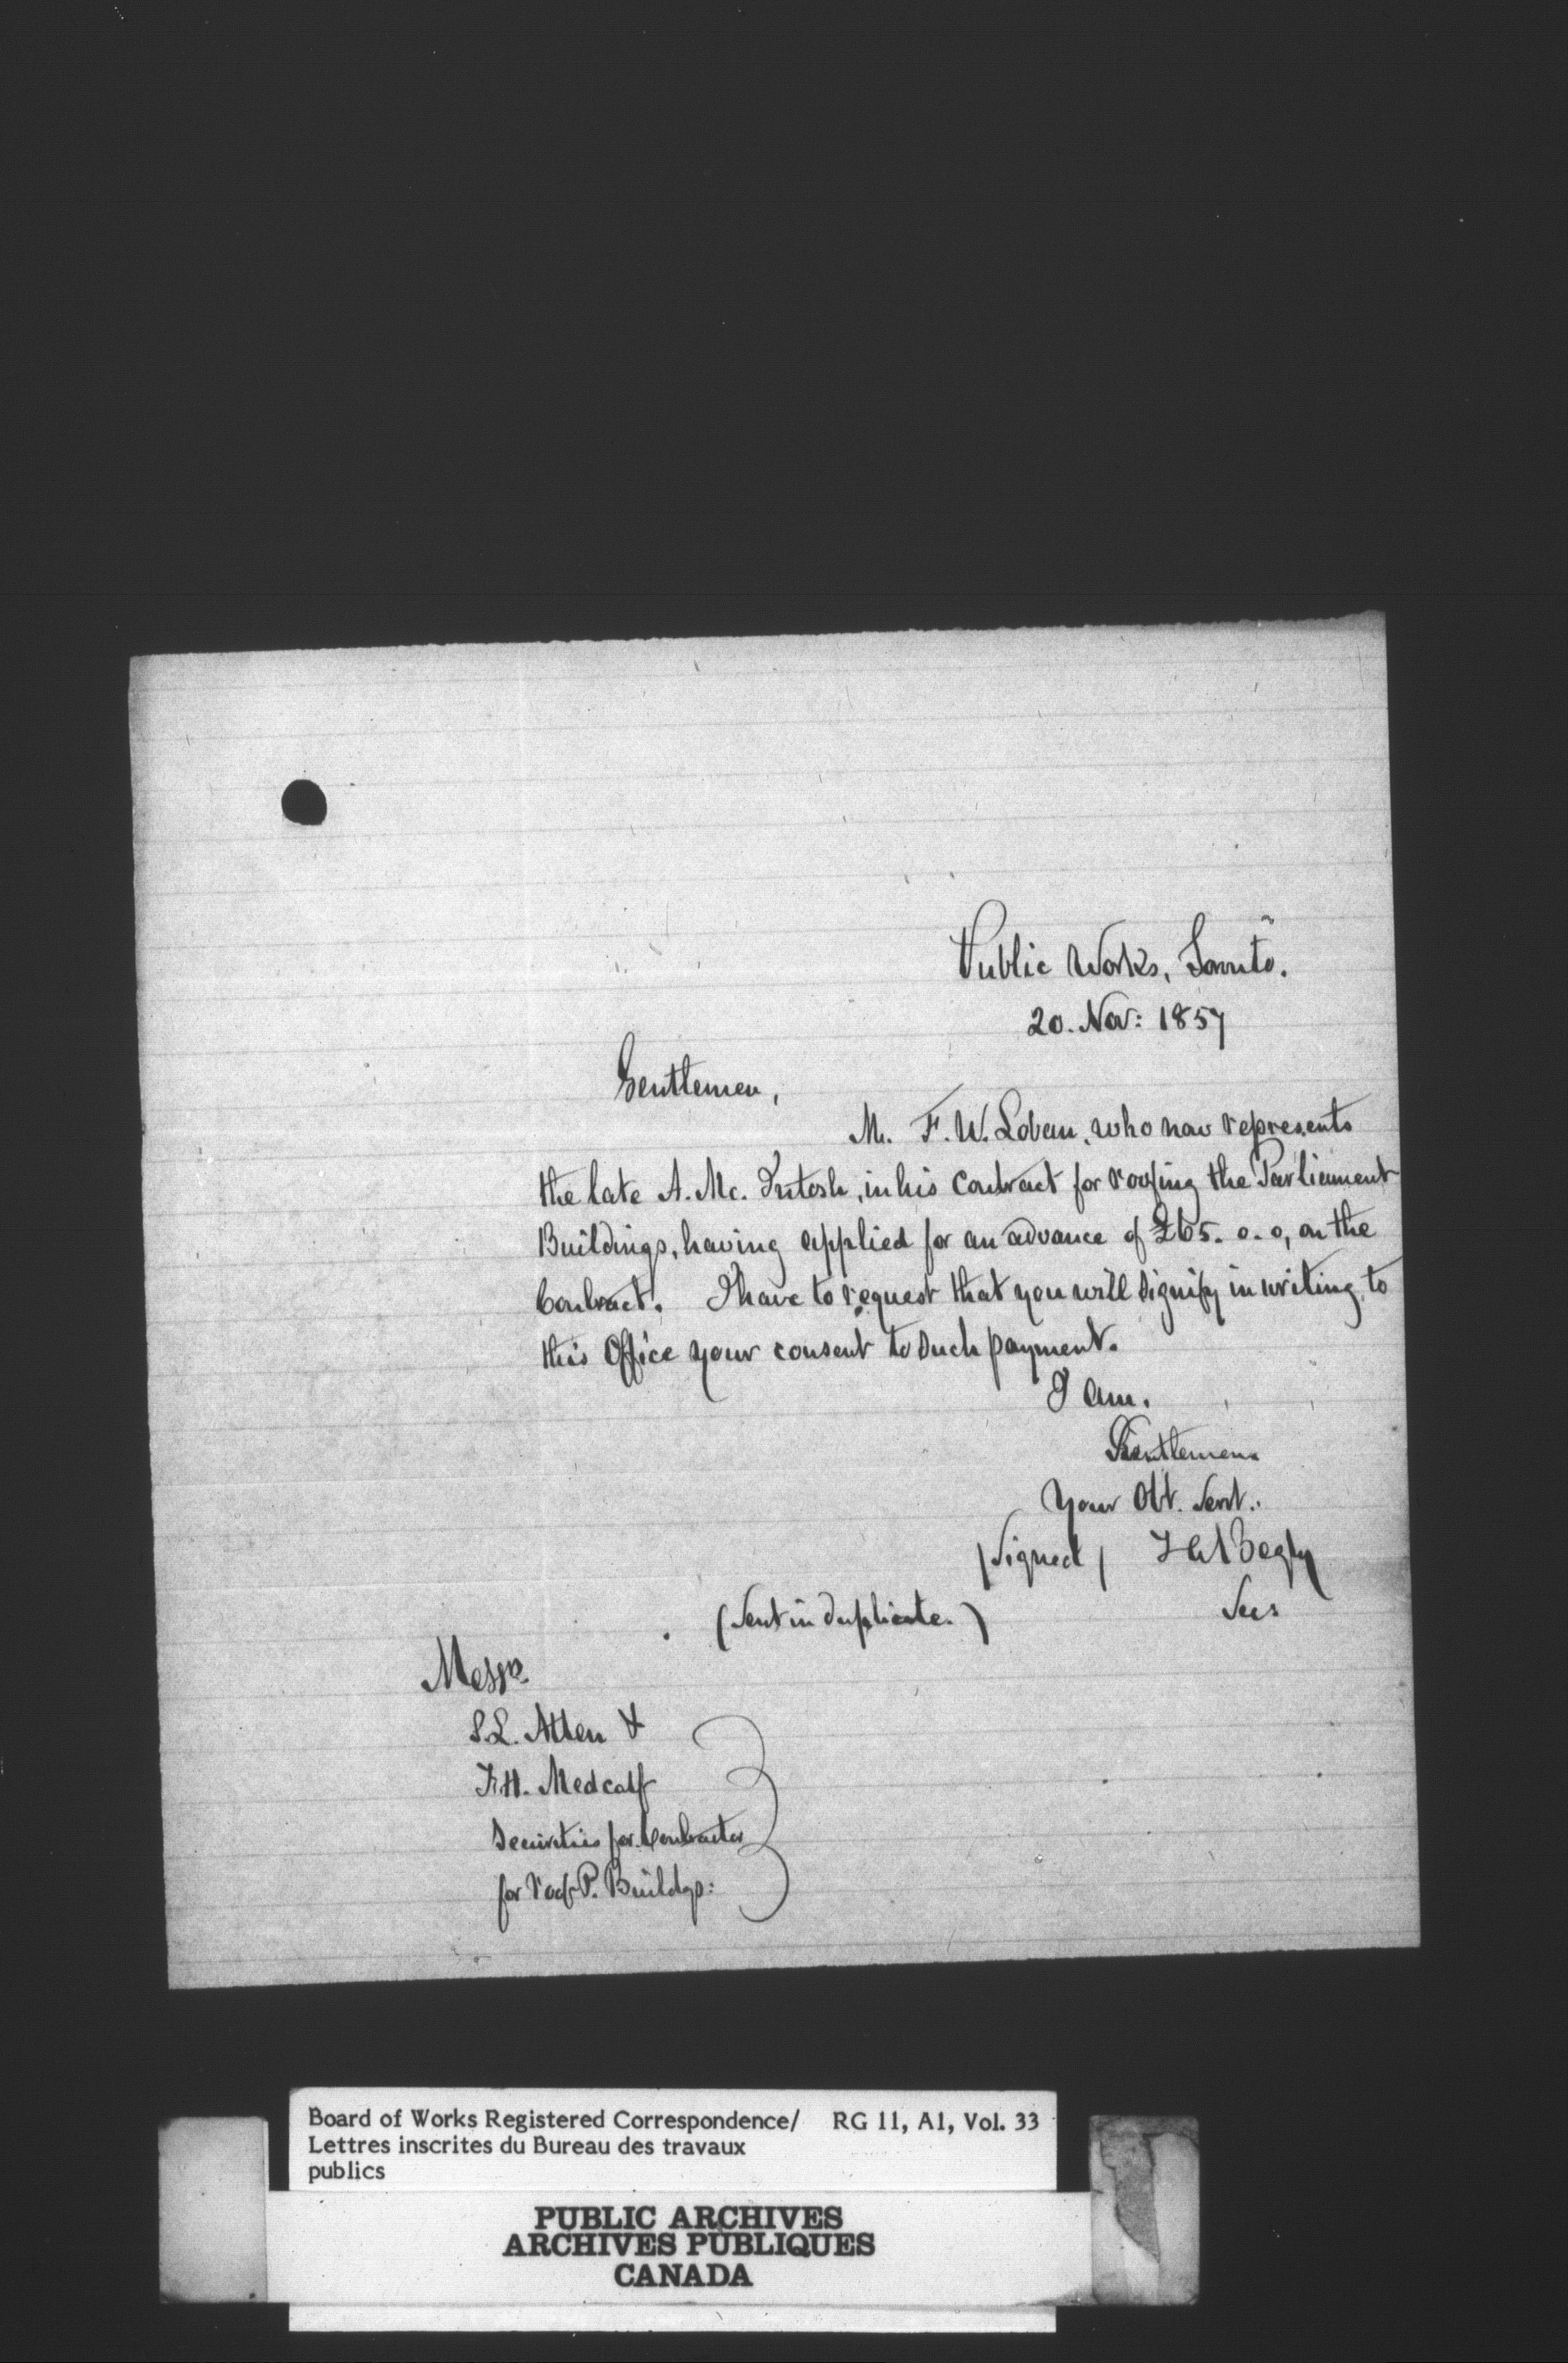 Public Works, Toronto.
20. Nov: 1857
Gentlemen,
M. F. W. Loban, who now represents
the late A. Mc. Intosh, in his contract for roofing the Parliament
Buildings, having applied for an advance of £65. 0. 0, on the
Contract. I have to request that you will signify in writing, to
this Office your consent to such payment.
I am.
Gentlemen
Your Obt. Servt.
(Signed) T A Begly
Secy
(Sent in duplicate.)
Messrs.
S. L. Allen &
F. H. Medcalf
Securities for Contractor
for roof P. Buildgs:
Board of Works Registered Correspondence/ RG 11, A1, Vol. 33
Lettres inscrites du Bureau des travaux
publics
PUBLIC ARCHIVES
ARCHIVES PUBLIQUES
CANADA